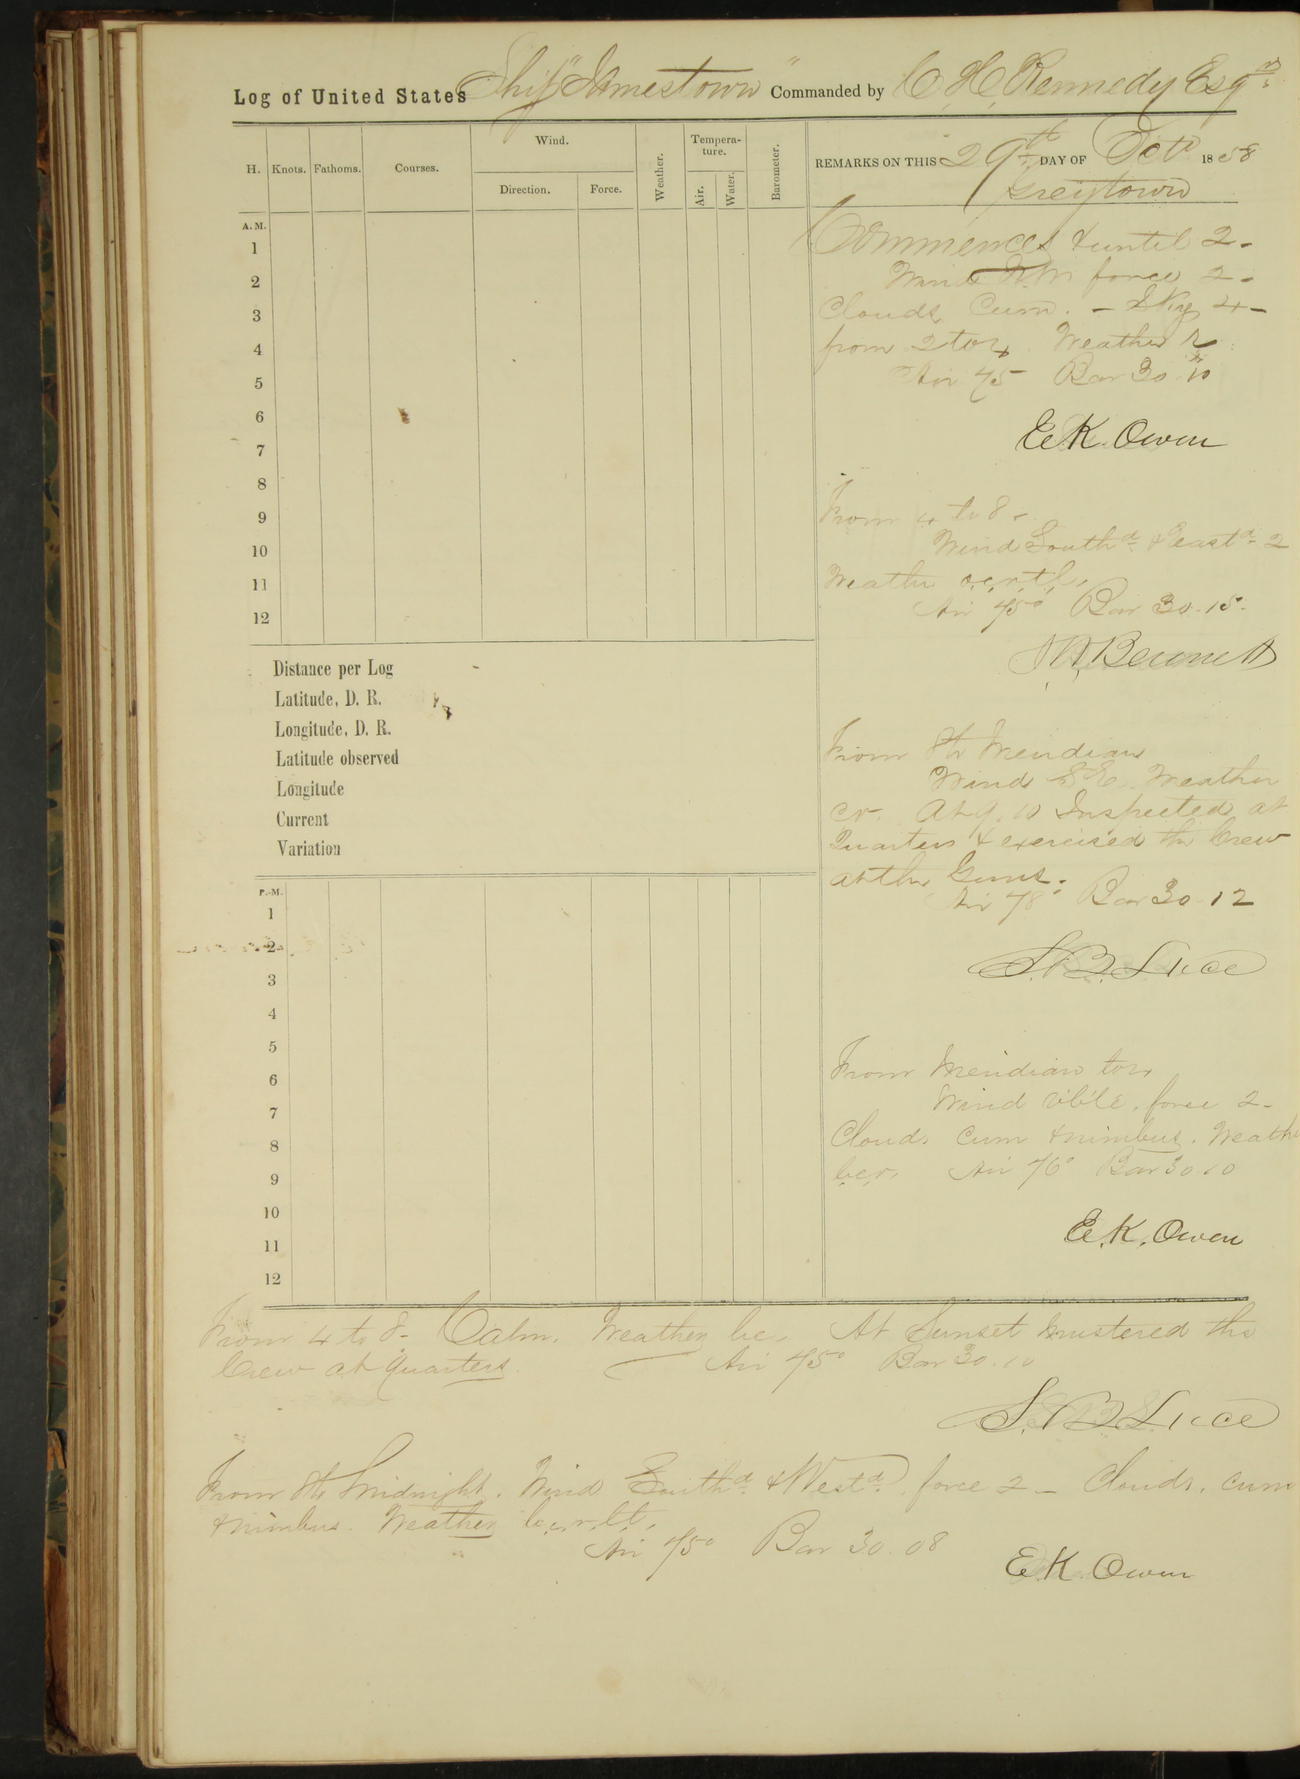 Log of United States Ship "Jamestown" Commanded by C. H. Kennedy Esqr.
H. Knots. Fathoms. Courses. Wind. Direction. Force. Weather. Tempera-ture. Air. Water. Barometer.
REMARKS ON THIS 29th DAY OF Octo 1858
Greytown
A.M.
1
2
3
4
5
6
7
8
9
10
11
12
Commences & until 2-
Wind force 2-
Clouds, Cum. - Sky 4-
from 2 to 4 Weather r
Air 75 Bar 30.10
E. K. Owen
From 4 to 8.
Wind Southd & eastd 2
Weather o.c.r.t.l.
Air 75° Bar 30.15.
Bennett
From 8 to Meridian
Wind S.E. Weather
cr. At 9.10 Inspected at
Quarters & exercised the Crew
at the Guns.
Air 78° Bar 30.12
S. B. Luce
Distance per Log
Latitude, D. R.
Longitude, D. R.
Latitude observed
Longitude
Current
Variation
P.M.
1
2
3
4
5
6
7
8
9
10
11
12
From Meridian to 4
Wind vible. force 2-
Clouds Cum & nimbus. Weathe
b.c.r. Air 76° Bar 30.10
E. K. Owen
From 4 to 8- Calm. Weather bc. At Sunset mustered the
Crew at quarters. Air 75° Bar 30.10
S. B. Luce
From 8 to Midnight. Wind Southd & Westd. force 2 - Clouds. Cum
& nimbus. Weather b.c.r.l.t.
Air 75° Bar 30.08
E. K. Owen